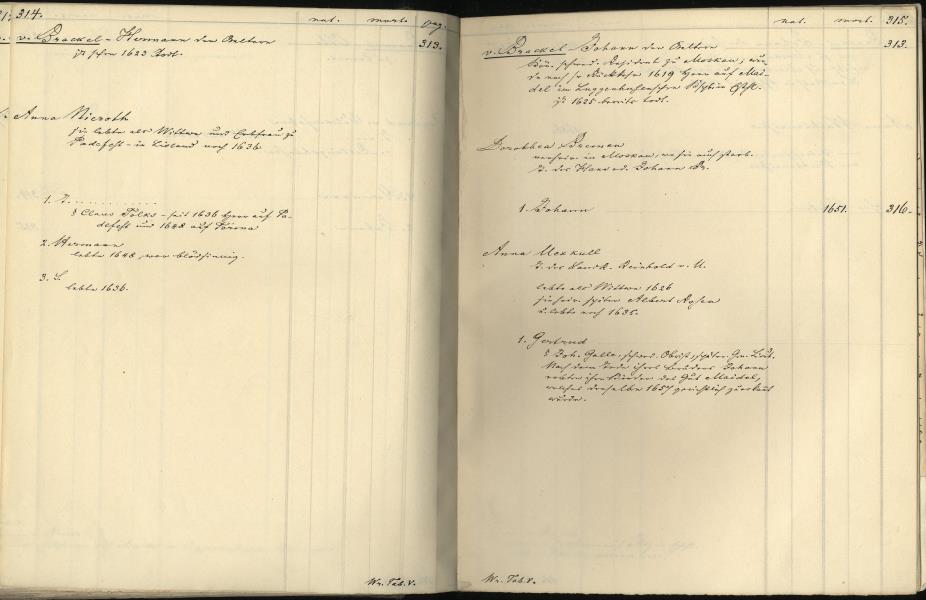 314.
nat. mort. pag.
v. Brackel - Hermann der Aeltere
313.
ist schon 1623 todt.
Anna Nieroth
sie lebte als Wittwe und Erbfrau zu
Padefest - in Livland noch 1636.
1. T. . . . . . . . . . . .
Claus Tölks - seit 1636 Herr auf Pa-
defest und 1648 auf
2. Hermann
lebte 1648, war blödsinnig.
3. S.
lebte 1636.
Wr. Tab. V.
nat. mort. 315.
v. Brackel - Johann der Aeltere
313.
Kön. schwed. Resident zu Moskau,
nach Rückkehr 1619 Herr auf Mai-
del im Luggenhusenschen Kirchspiele
ist 1625 bereits todt.
Dorothea Bremen
in Moskau, wo sie auch starb.
T. des Hans od. Johann Br.
1. Johann 1651. 316.
Anna Uexkull
T. des Landr. Reinhold v. U.
lebte als Wittwe 1626
später Albert Rosen
u. lebte noch 1635.
1. Gertrud
Joh. Galle, schwed. Obrist, später Gen. Lieut.
Nach dem Tode ihres Bruders Johann
erbten ihre Kinder das Gut Maidel,
welches derselben 1657 gerichtlich
wurde.
Wr. Tab. V.